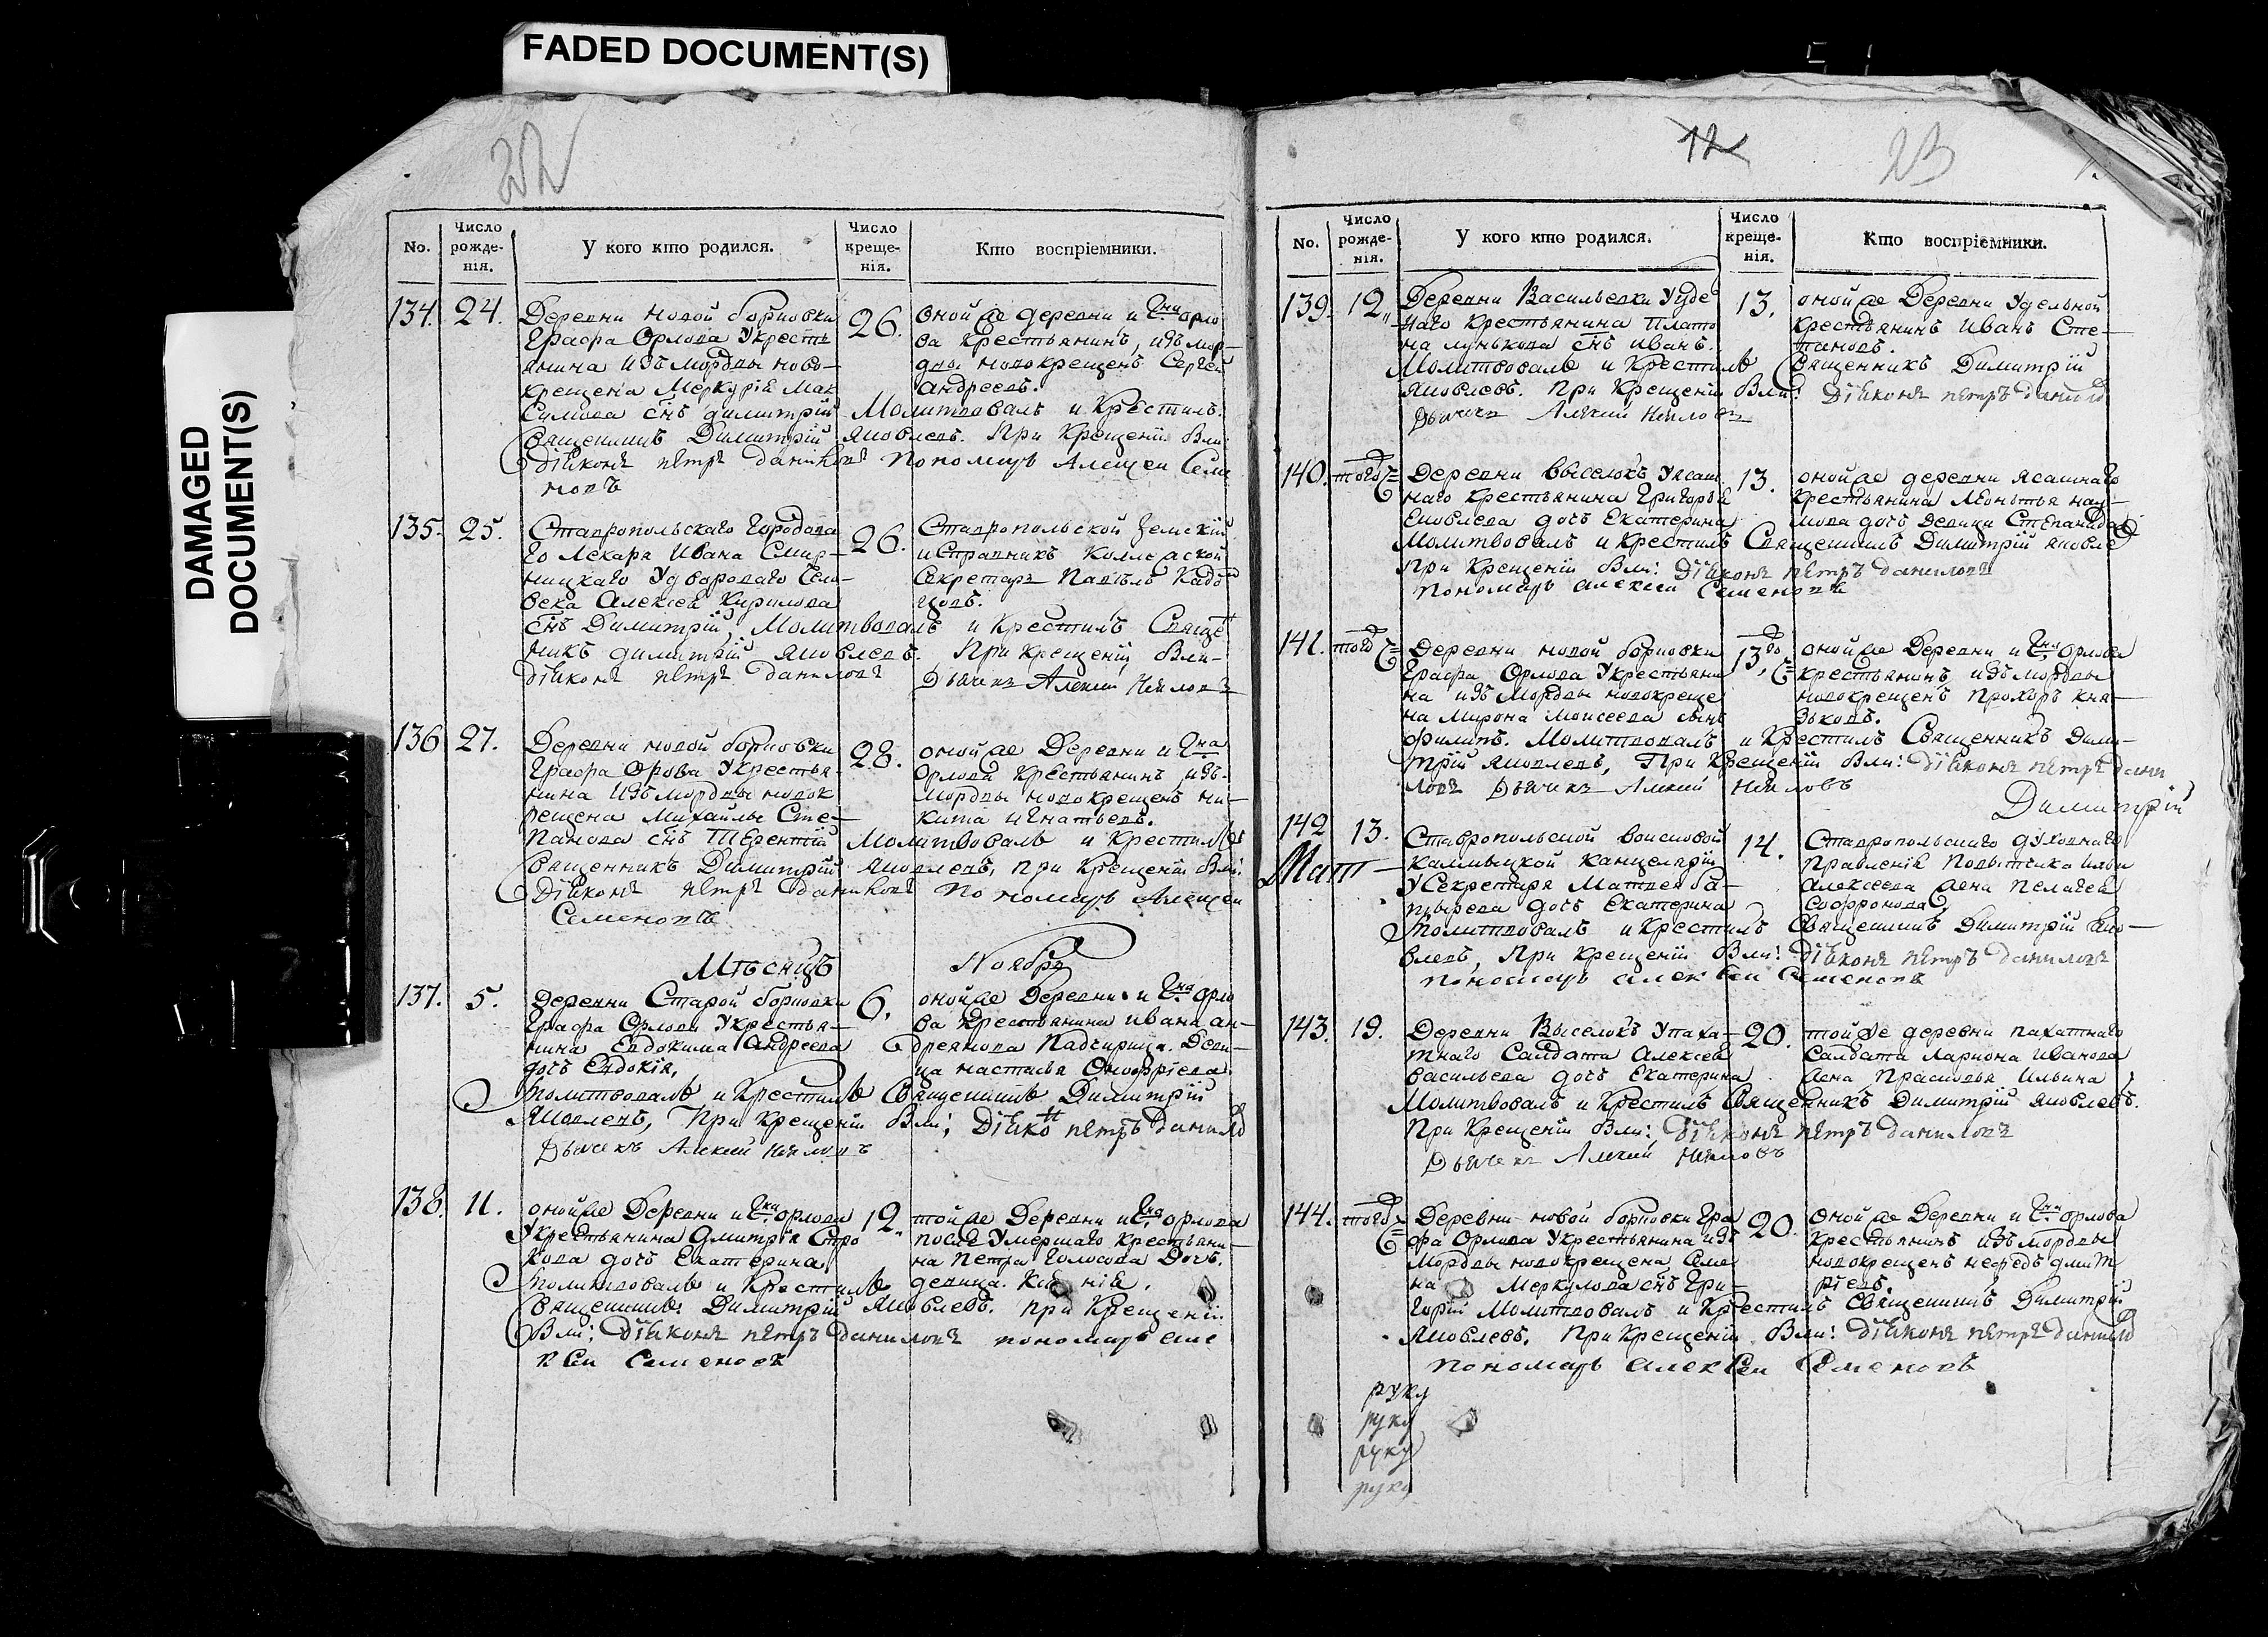 FADED DOCUMENT(S)
DAMAGED
DOCUMENT(S)
22
No.
Число рожде-нія.
У кого кто родился.
Число креще-нія.
Кто воспріемники.
134. 24.
Деревни новой борковки
Графа Орлова Укресть
янина изъ мордвы ново-
крещена Меркурія Мак
симова снъ димитрій
26.
оной же деревни и Гна орло
ва крестьянинъ, изъ мор-
двы новокрещенъ Сергей
андреевъ.
Молитвовалъ и Крестилъ
Священникъ Димитрій яковлевъ. При Крещеніи бли:
діяконъ петръ даниловъ пономарь Алексеи Семе
новъ
135. 25.
Ставропольскаго Городова
го Лекаря Ивана Смир-
ницкаго Удвороваго Чело-
века Алексея Кирилова
снъ Димитрій,
26.
Ставропольской Земскій
исправникъ Коллежской
Секретарь Павелъ
Молитвовалъ и Крестилъ Свяще
никъ димитрій яковлевъ. При крещеніи, бли-
діяконъ петръ даниловъ Дьячекъ Алексей Неиловъ
136 27.
Деревни новой борковки
Графа Орова Укрестья-
нина Изъ мордвы новок
рещена Михайлы Сте-
панова снъ Терентій
28.
оной же Деревни и Гна
Орлова крестьянинъ изъ-
Мордвы новокрещенъ ни-
кита игнатьевъ.
Молитвовалъ и крестилъ
Священникъ Димитрій яковлевъ, при крещеніи бли:
діяконъ петръ даниловъ пономарь Алексеи
Семеновъ
Мѣсяцъ Ноябрь
137. 5.
деревни Старой борковки
Графа Орлова Укрестья-
нина Евдокима Андреева
дочь Евдокія,
6.
оной же Деревни и Гна орло
ва Крестьянина ивана ан-
дреянова Падчирица. Деви-
ца настасья Онофріева
молитвовалъ и крестилъ Священникъ Димитрій
Яковлевъ, При Крещеніи бли; Діяконъ петръ данило
Дьячекъ Алексей Неиловъ
138. 11.
оной же Деревни и Гна орлова
Укрестьянина Дмитрія
дочь Екатерина.
12.
той же Деревни и Гна орлова
после Умершаго крестьяни-
на Петра Голосова Дочь.
девица.
молитвовалъ и Крестилъ
Священникъ Димитрій Яковлевъ. при крещеніи
бли; діяконъ петръ даниловъ пономарь але
ксеи Семеновъ
12
23
No.
Число рожде-нія.
У кого кто родился.
Число креще-нія.
Кто воспріемники.
139. 12.
Деревни Васильевки Уудѣ
наго Крестьянина Плато
на лунькова снъ иванъ.
13.
оной же Деревни Удельной
крестьянинъ Иванъ Сте-
пановъ.
Молитвовалъ и Крестилъ Священникъ Димитрій
яковлевъ. При Крещеніи бли: Діяконъ петръ данило
Дьячекъ Алексей Неиловъ
140. того
Деревни выселокъ Уясаш
наго крестьянина Григорья
Яковлева дочь Екатерина
13.
оной же деревни ясашнаго
крестьянина Леонтья нау-
мова дочь девица Степанида
Молитвовалъ и Крестилъ Священникъ Димитрій яковле
При Крещеніи бли: Діяконъ петръ даниловъ
пономарь алексеи Семеновъ
141. того
Деревни новой борковки
Графа Орлова Укрестьяни
на изъ Мордвы новокреще
на Мирона Моисеева сынъ
филипъ.
13
оной же Деревни и Гна орлова
крестьянинъ изъ мордвы
новокрещенъ прохоръ кня-
зьковъ.
Молитвовалъ и Крестилъ Священникъ Дими-
трій яковлевъ, При Крещеніи бли: діяконъ петръ дани
ловъ Дьячекъ Алексей Неиловъ
Димитрій
142 13.
Мат
Ставропольской воисковой
калмыцкой канцеляріи
УСекретаря Матвея ба-
пырева дочь Екатерина
14.
Ставропольскаго духовнаго
Правленія Подытчика Ильи
алексеева жена пелагея
Софронова,
Молитвовалъ и Крестилъ Священникъ Димитрій Яко-
влевъ, При Крещеніи бли: діяконъ петръ даниловъ
пономарь алексеи Семеновъ
143. 19.
Деревни Выселокъ Упаха-
тнаго Салдата Алексея
Васильева дочь Екатерина
20.
той же деревни пахатнаго
Салдата Лариона Иванова
жена Прасковья Ильина
Молитвовалъ и Крестилъ Священникъ Димитрій яковлевъ.
При Крещеніи бли: діяконъ петръ даниловъ
Дьячекъ Алексей Неиловъ
144. того
Деревни новой борковки Гра
фа Орлова Укрестьянина изъ
Мордвы новокрещена Семе
на Меркулова снъ Гри-
горій
20.
оной же Деревни и Гна орлова
Крестьянинъ изъ мордвы
новокрещенъ нефедъ дмит
ріевъ.
Молитвовалъ и Крестилъ Священникъ Димитрій
яковлевъ, При Крещеніи бли: діяконъ петръ данило
пономарь алексеи Семеновъ
руку
руку
руку
руку